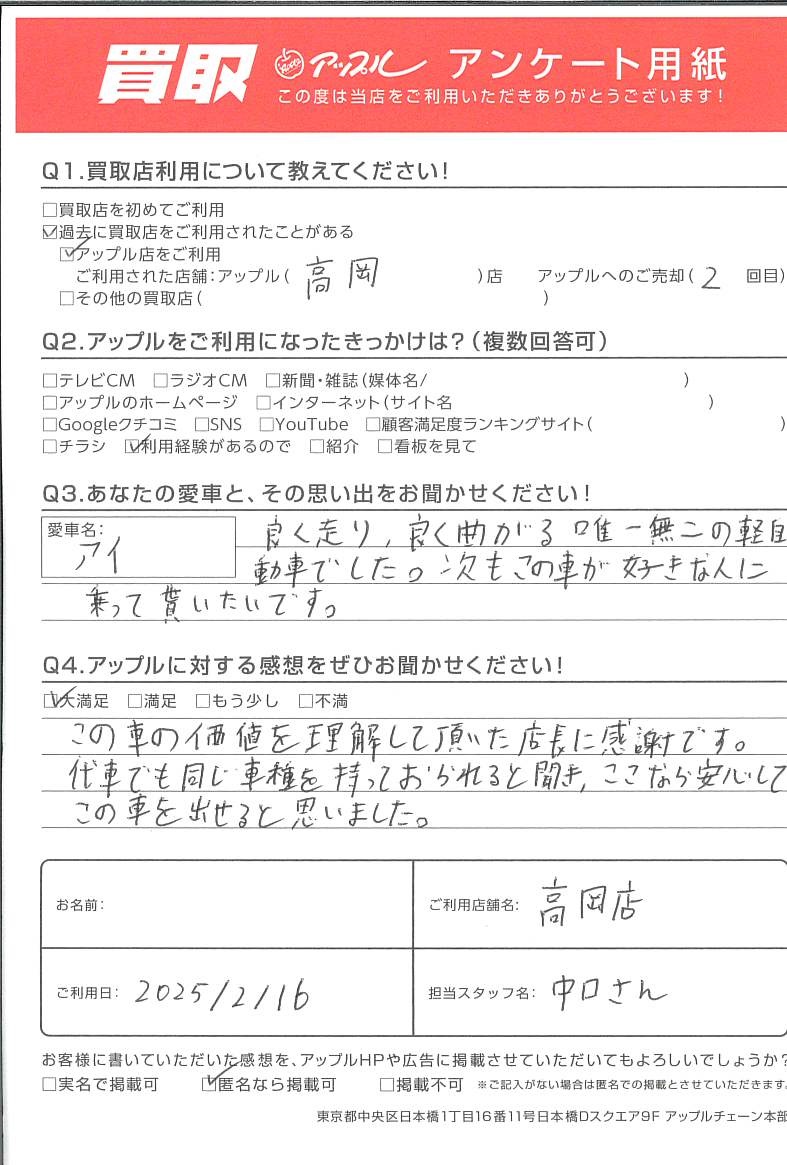 買取 アップル アンケート用紙
この度は当店をご利用いただきありがとうございます!
Q1.買取店利用について教えてください!
□買取店を初めてご利用
☑過去に買取店をご利用されたことがある
☑アップル店をご利用
ご利用された店舗:アップル( 高岡 )店 アップルへのご売却( 2 回目)
□その他の買取店( )
Q2.アップルをご利用になったきっかけは?(複数回答可)
□テレビCM □ラジオCM □新聞・雑誌(媒体名/ )
□アップルのホームページ □インターネット(サイト名 )
□Googleクチコミ □SNS □YouTube □顧客満足度ランキングサイト( )
□チラシ ☑利用経験があるので □紹介 □看板を見て
Q3.あなたの愛車と、その思い出をお聞かせください!
愛車名: アイ
良く走り, 良く曲がる 唯一無二の軽自
動車でした。次もこの車が 好きな人に
乗って 貰いたいです。
Q4.アップルに対する感想をぜひお聞かせください!
☑大満足 □満足 □もう少し □不満
この車の価値を理解して頂いた店長に感謝です。
代車でも同じ車種を持っておられると聞き, ここなら安心して
この車を出せると思いました。
お名前:
ご利用店舗名: 高岡店
ご利用日: 2025/2/16
担当スタッフ名: 中口さん
お客様に書いていただいた感想を、アップルHPや広告に掲載させていただいてもよろしいでしょうか?
□実名で掲載可 ☑匿名なら掲載可 □掲載不可 ※ご記入がない場合は匿名での掲載とさせていただきます。
東京都中央区日本橋1丁目16番11号日本橋Dスクエア9F アップルチェーン本部